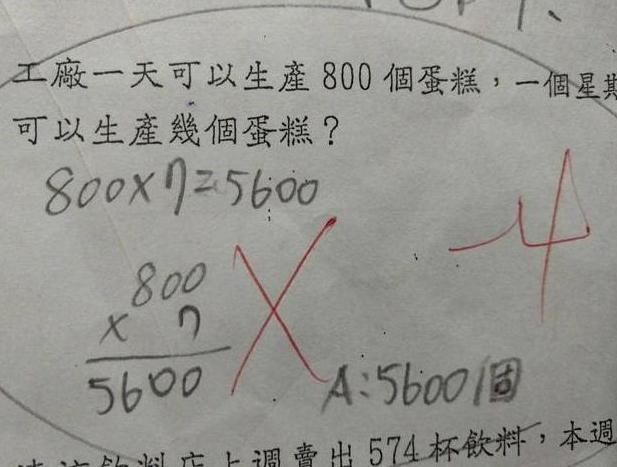 工廠一天可以生產 800 個蛋糕，一個星期
可以生產幾個蛋糕？
800×7=5600
-4
800
× 7
5600
A:5600個
週賣出 574 杯飲料，本週